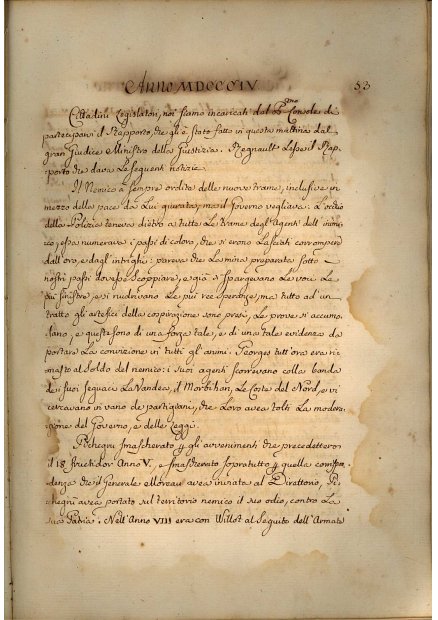 Anno MDCCCIV 53
Cittadini Legislatori, noi siamo incaricati dal Pmo Console di
participarvi il Rapporto, che gli è stato fatto in questa mattina dal
gran Giudice Ministro della Giustizia. Regnault Lesse il Rap=
porto che dava Le seguenti notizie.
Il Nemico à sempre ordite delle nuove trame, inclusive in
mezzo della pace da Lui giurata, ma il Governo vegliava: L'occhio
della Polizia teneva dietro a tutte Le trame degl'Agenti dell'inimi=
co; essa numerava i passi di coloro, che si erono Lasciati corrompere
dall'oro, e dagl'intrighi: pareva che La mina preparata sotto i
nostri passi dovesse scoppiare, e già si spargevano Le voci Le
più sinistre, e si nudrivano Le più ree speranze, ma tutto ad un
tratto gli artefici della cospirazione sono presi, Le prove si accumu=
lano, e queste sono di una forza tale, e di una tale evidenza da
portare La convizione in tutti gli animi. Georges tutt'ora era ri=
masto al soldo del nemico: i suoi agenti scorrevano colla banda
de' suoi seguaci La Vandea, il Morbihan, Le Coste del Nord, e vi
cercavano in vano de partigiani, che Loro avea tolti La modera=
zione del Governo, e delle Leggi.
Pichegru smascherato p gli avvenimenti che precedettero
il 18 fructidor Anno V. e smascherato sopratutto p quella corrispon=
denza che il Generale Moreau avea inviata al Direttorio, Pi=
chegru avea portato sul territorio nemico il suo odio, contro La
sua Patria. Nell'Anno VIII era con Willot al seguito dell'Armate